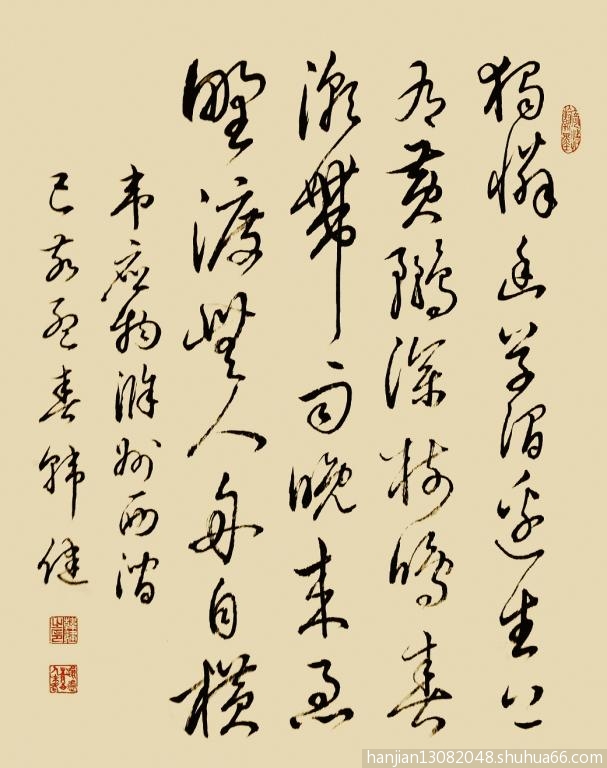 獨憐幽草澗邊生上
有黃鸝深樹鳴春
潮帶雨晚來急
野渡無人舟自橫
韋應物滁州西澗
己亥孟春韓健
hanjian13082048.shuhua66.com